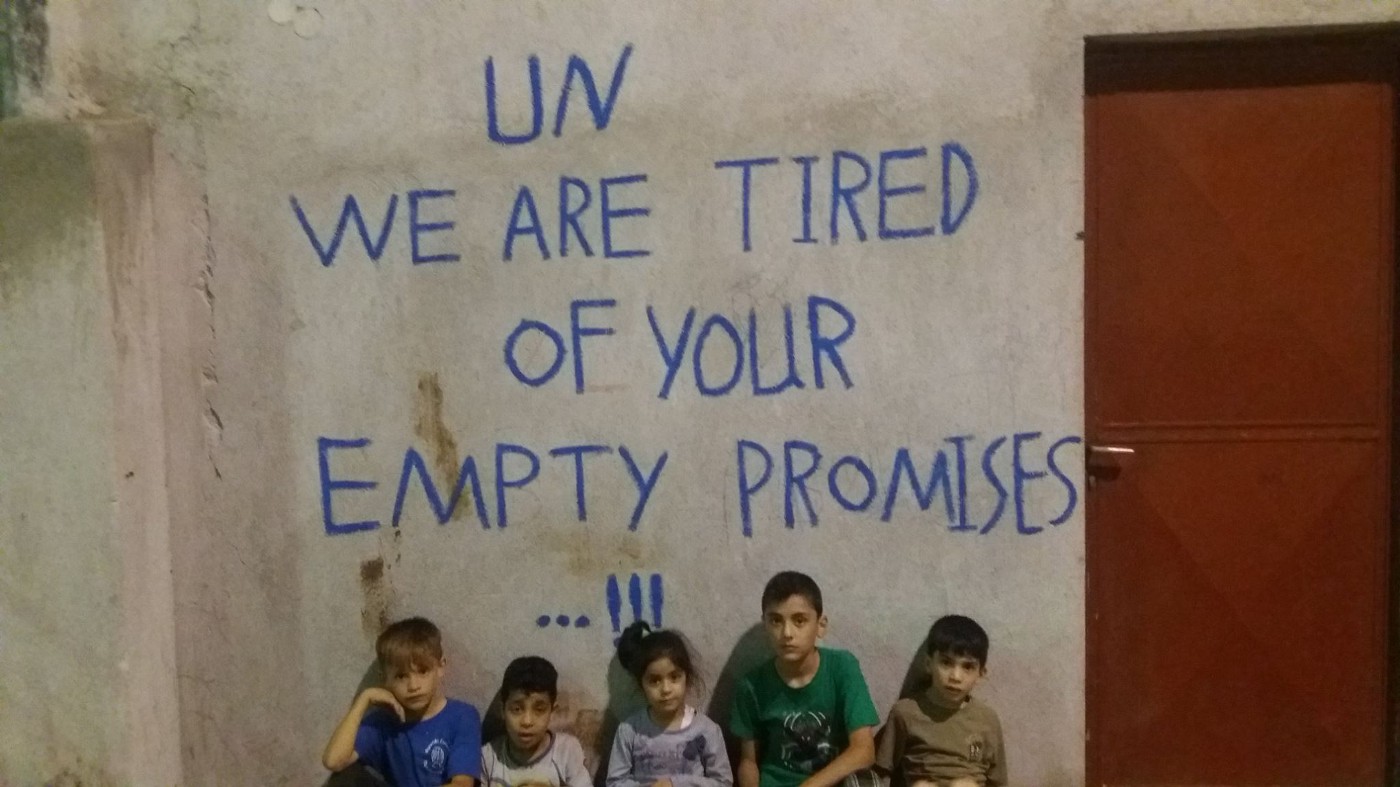 UN
WE ARE TIRED
OF YOUR
EMPTY PROMISES
...!!!